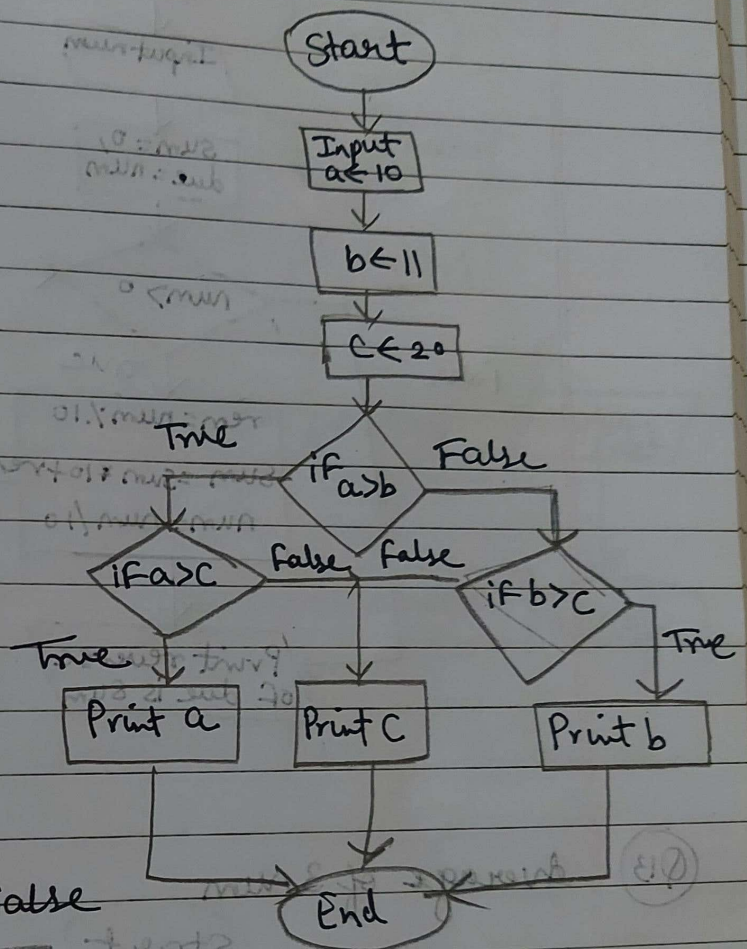 Start
Input
a←10
b←11
c←20
True
False
if
a>b
if a>c
False
False
if b>c
True
True
Print a
Print c
Print b
End
alse